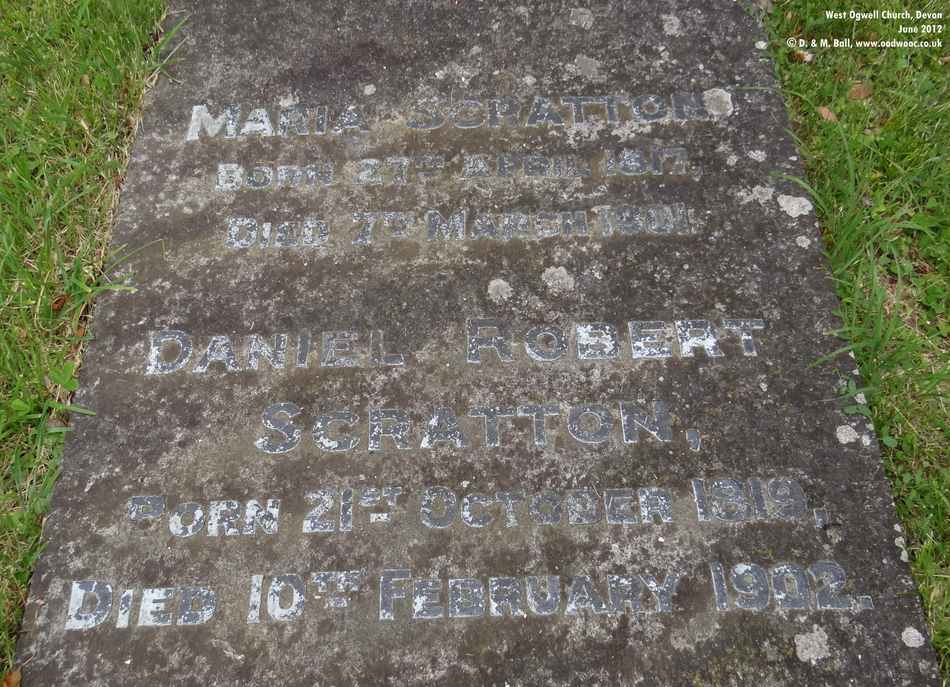 West Ogwell Church, Devon
June 2012
© D. & M. Ball, www.oodwooc.co.uk
MARIA SCRATTON
BORN 27TH APRIL 1817,
DIED 7TH MARCH 1901.
DANIEL ROBERT
SCRATTON,
BORN 21ST OCTOBER 1819,
DIED 10TH FEBRUARY 1902.